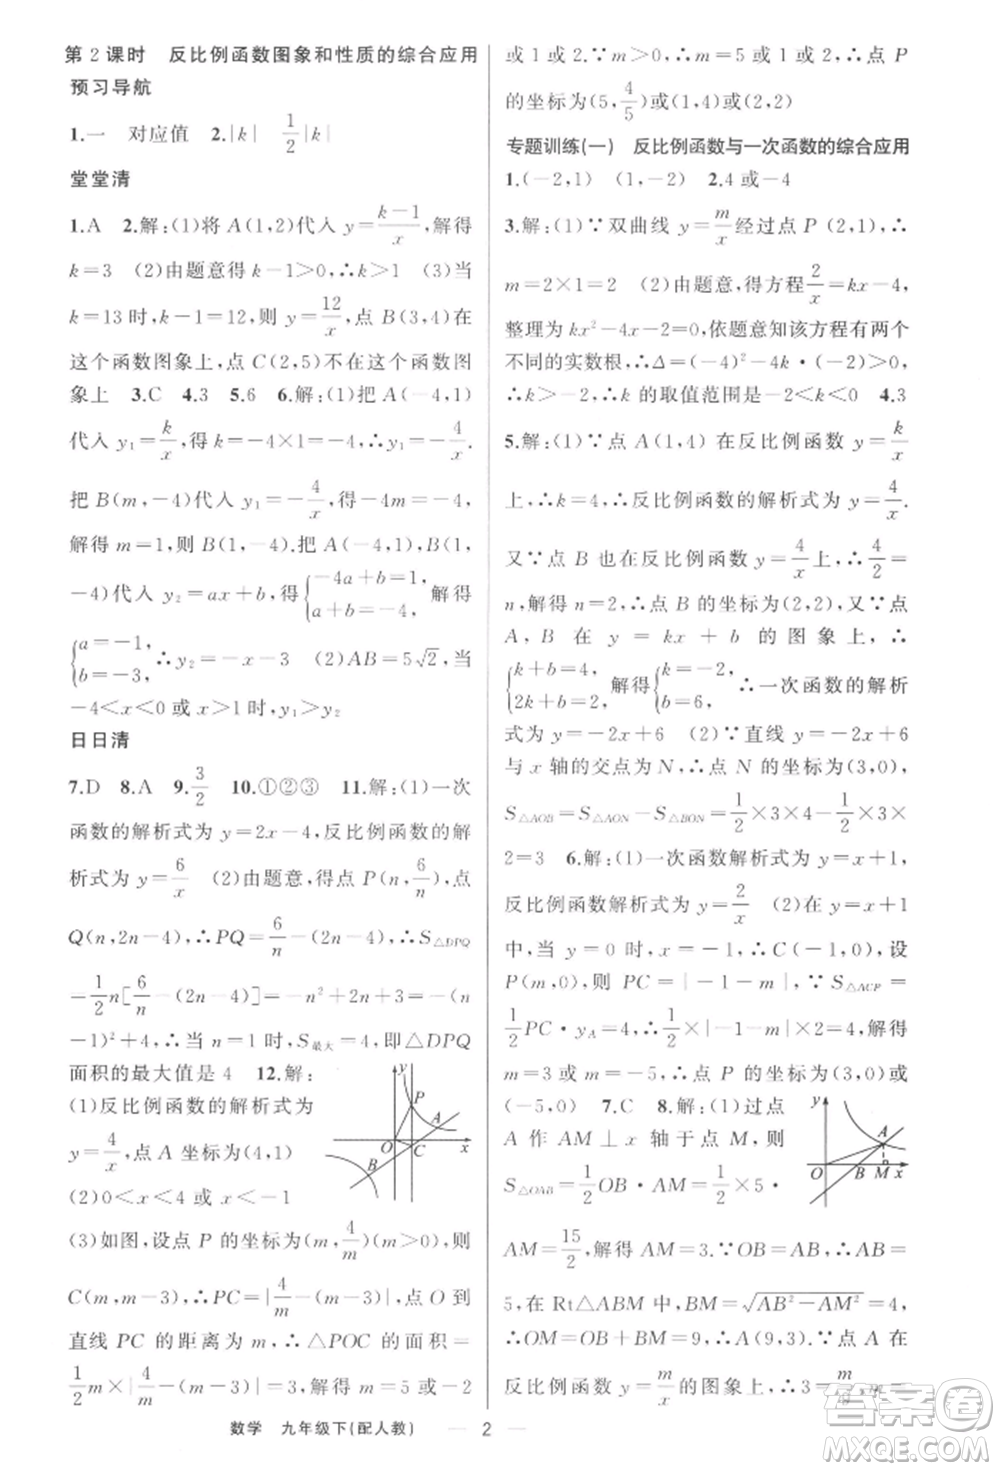 第2课时　反比例函数图象和性质的综合应用
预习导航
1.一　对应值　2.|k|　1/2|k|
堂堂清
1.A　2.解:(1)将A(1,2)代入y=(k-1)/x,解得
k=3　(2)由题意得k-1>0,∴k>1　(3)当
k=13时,k-1=12,则y=12/x,∴点B(3,4)在
这个函数图象上,点C(2,5)不在这个函数图
象上　3.C　4.3　5.6　6.解:(1)把A(-4,1)
代入y₁=k/x,得k=-4×1=-4,∴y₁=-4/x.
把B(m,-4)代入y₁=-4/x,得-4m=-4,
解得m=1,则B(1,-4).把A(-4,1),B(1,
-4)代入y₂=ax+b,得{-4a+b=1, a+b=-4,解得
{a=-1, b=-3,∴y₂=-x-3　(2)AB=5√2,当
-4<x<0或x>1时,y₁>y₂
日日清
7.D　8.A　9.3/2　10.①②③　11.解:(1)一次
函数的解析式为y=2x-4,反比例函数的解
析式为y=6/x　(2)由题意,得点P(n,6/n),点
Q(n,2n-4),∴PQ=6/n-(2n-4),∴S△DPQ
=1/2n[6/n-(2n-4)]=-n²+2n+3=-(n
-1)²+4,∴当n=1时,S最大=4,即△DPQ
面积的最大值是4　12.解:
(1)反比例函数的解析式为
y=4/x,点A坐标为(4,1)
(2)0<x<4或x<-1
(3)如图,设点P的坐标为(m,4/m)(m>0),则
C(m,m-3),∴PC=|4/m-(m-3)|,点O到
直线PC的距离为m,∴△POC的面积=
1/2m×|4/m-(m-3)|=3,解得m=5或-2
y
P
O
C
B
x
或1或2.∵m>0,∴m=5或1或2,∴点P
的坐标为(5,4/5)或(1,4)或(2,2)
专题训练(一)　反比例函数与一次函数的综合应用
1.(-2,1)　(1,-2)　2.4或-4
3.解:(1)∵双曲线y=m/x经过点P(2,1),∴
m=2×1=2　(2)由题意,得方程2/x=kx-4,
整理为kx²-4x-2=0,依题意知该方程有两个
不同的实数根,∴Δ=(-4)²-4k·(-2)>0,
∴k>-2,∴k的取值范围是-2<k<0　4.3
5.解:(1)∵点A(1,4)在反比例函数y=k/x
上,∴k=4,∴反比例函数的解析式为y=4/x.
又∵点B也在反比例函数y=4/x上,∴4/2=
n,解得n=2,∴点B的坐标为(2,2),又∵点
A,B在y=kx+b的图象上,∴
{k+b=4, 2k+b=2,解得{k=-2, b=6,∴一次函数的解析
式为y=-2x+6　(2)∵直线y=-2x+6
与x轴的交点为N,∴点N的坐标为(3,0),
S△AOB=S△AON-S△BON=1/2×3×4-1/2×3×
2=3　6.解:(1)一次函数解析式为y=x+1,
反比例函数解析式为y=2/x　(2)在y=x+1
中,当y=0时,x=-1,∴C(-1,0),设
P(m,0),则PC=|-1-m|,∵S△ACP=
1/2PC·yA=4,∴1/2×|-1-m|×2=4,解得
m=3或m=-5,∴点P的坐标为(3,0)或
(-5,0)　7.C　8.解:(1)过点
A作AM⊥x轴于点M,则
S△OAB=1/2OB·AM=1/2×5·
AM=15/2,解得AM=3.∵OB=AB,∴AB=
5,在Rt△ABM中,BM=√(AB²-AM²)=4,
∴OM=OB+BM=9,∴A(9,3).∵点A在
反比例函数y=m/x的图象上,∴3=m/9,
y
A
O
B
M
x
数学　九年级下(配人教)　— 2 —
答案圈
MXQE.COM